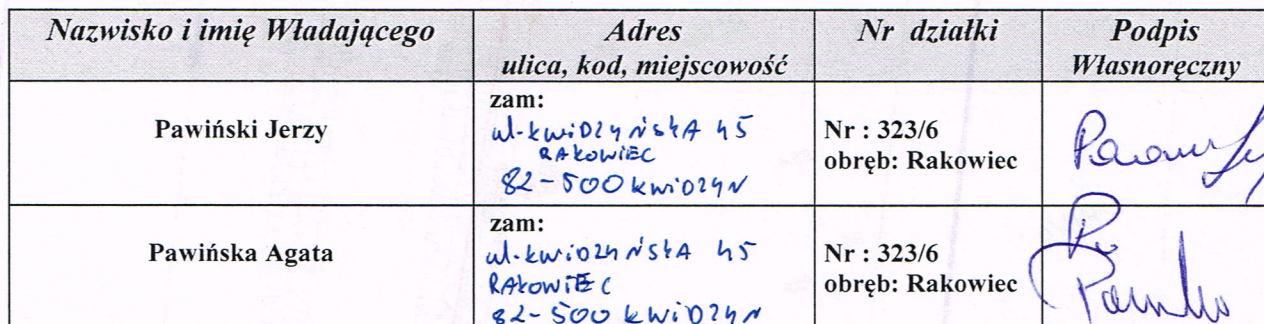 Nazwisko i imię Władającego
Adres
ulica, kod, miejscowość
Nr działki
Podpis
Własnoręczny
Pawiński Jerzy
zam:
ul. KWIDZYŃSKA 45
RAKOWIEC
82-500 KWIDZYN
Nr : 323/6
obręb: Rakowiec
Pawińska Agata
zam:
ul. KWIDZYŃSKA 45
RAKOWIEC
82-500 KWIDZYN
Nr : 323/6
obręb: Rakowiec